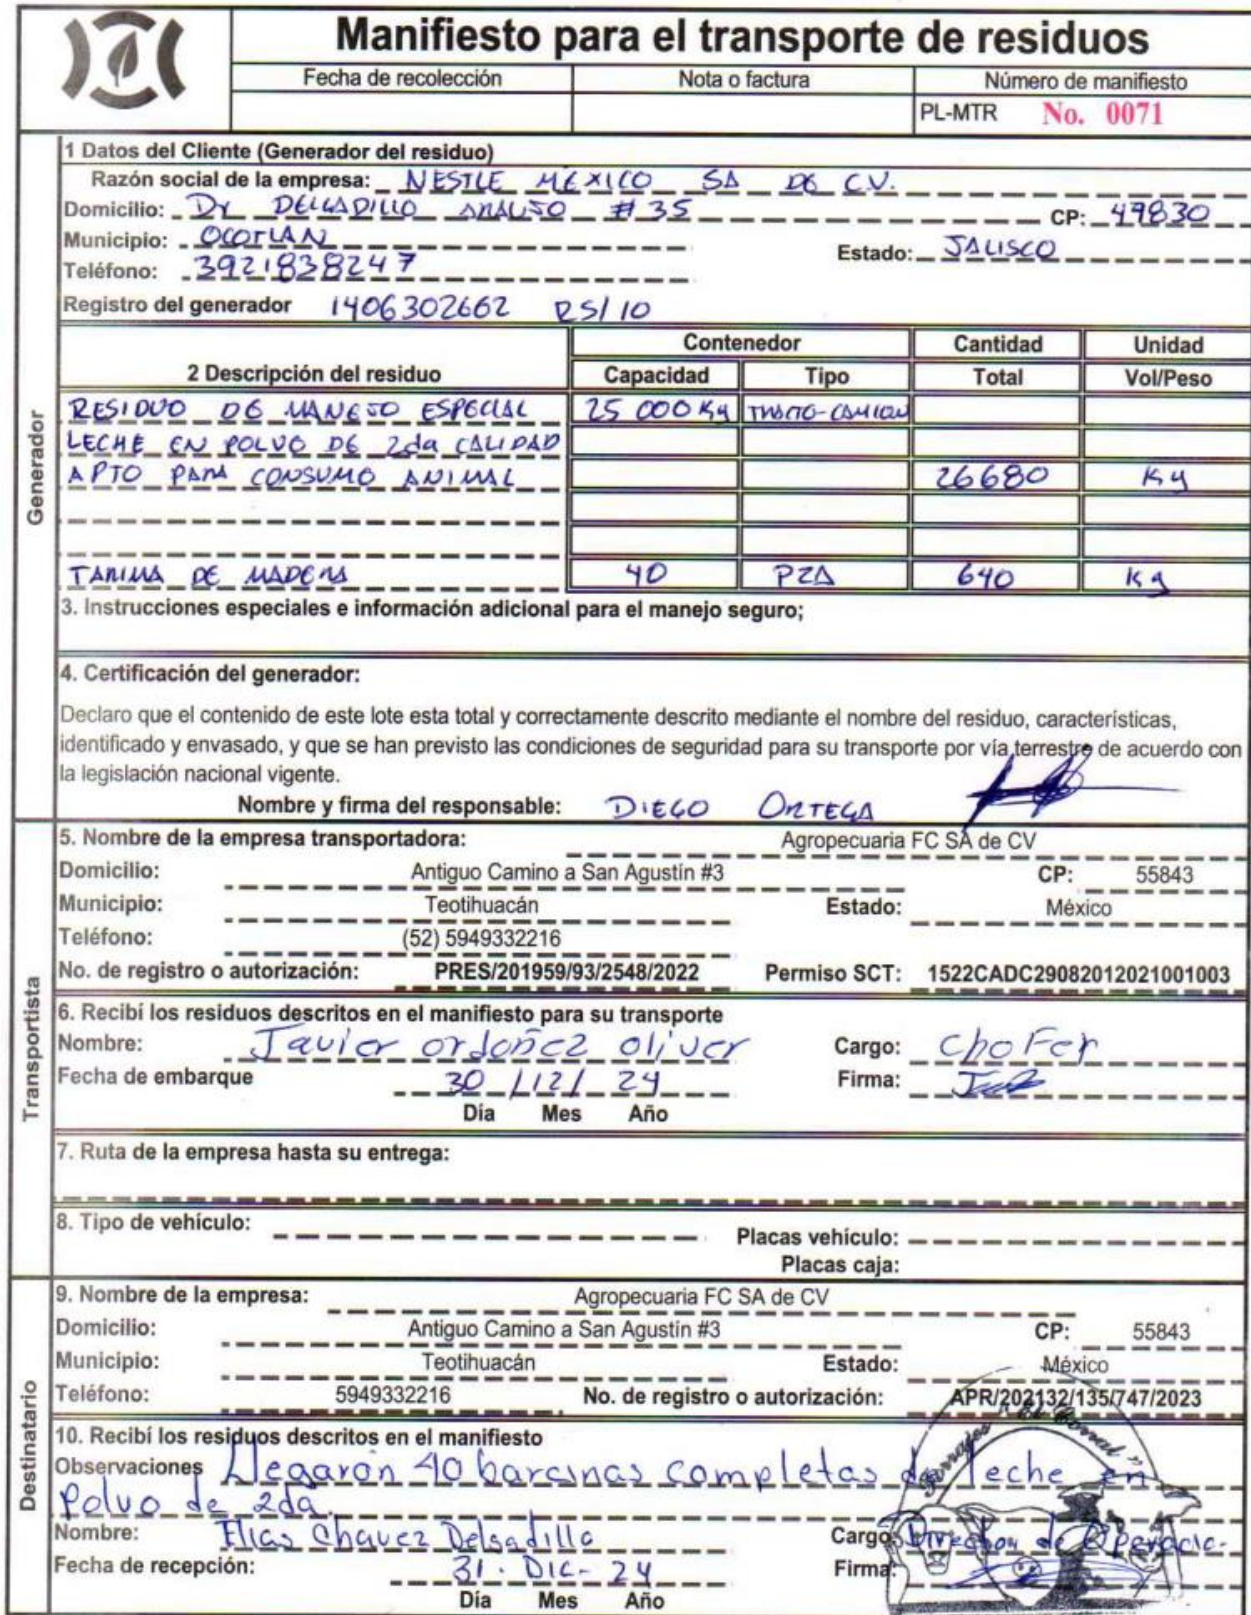 Manifiesto para el transporte de residuos
Fecha de recolección Nota o factura Número de manifiesto
PL-MTR No. 0071
1 Datos del Cliente (Generador del residuo)
Razón social de la empresa: NESTLE MÉXICO SA DE C.V.
Domicilio: Dr DELGADILLO ARAUJO #35 CP: 47830
Municipio: OCOTLAN
Estado: JALISCO
Teléfono: 3921838247
Registro del generador 1406302662 RS/10
Generador
Contenedor Cantidad Unidad
2 Descripción del residuo Capacidad Tipo Total Vol/Peso
RESIDUO DE MANEJO ESPECIAL 25 000 Kg TRACTO-CAMION
LECHE EN POLVO DE 2da CALIDAD
APTO PARA CONSUMO ANIMAL 26680 Kg
TARIMA DE MADERA 40 PZA 640 Kg
3. Instrucciones especiales e información adicional para el manejo seguro;
4. Certificación del generador:
Declaro que el contenido de este lote esta total y correctamente descrito mediante el nombre del residuo, características,
identificado y envasado, y que se han previsto las condiciones de seguridad para su transporte por vía terrestre de acuerdo con
la legislación nacional vigente.
Nombre y firma del responsable: DIEGO ORTEGA
Transportista
5. Nombre de la empresa transportadora: Agropecuaria FC SA de CV
Domicilio: Antiguo Camino a San Agustín #3 CP: 55843
Municipio: Teotihuacán Estado: México
Teléfono: (52) 5949332216
No. de registro o autorización: PRES/201959/93/2548/2022 Permiso SCT: 1522CADC29082012021001003
6. Recibí los residuos descritos en el manifiesto para su transporte
Nombre: Javier ordoñez oliver Cargo: choFer
Fecha de embarque 30 /12/ 24 Firma:
Día Mes Año
7. Ruta de la empresa hasta su entrega:
8. Tipo de vehículo:
Placas vehículo:
Placas caja:
Destinatario
9. Nombre de la empresa: Agropecuaria FC SA de CV
Domicilio: Antiguo Camino a San Agustín #3 CP: 55843
Municipio: Teotihuacán Estado: México
Teléfono: 5949332216 No. de registro o autorización: APR/202132/135/747/2023
10. Recibí los residuos descritos en el manifiesto
Forrajes "El Corral"
Observaciones Llegaron 40 barcinas completas de leche en
Polvo de 2da.
Nombre: Elias Chavez Delgadillo Cargo Director de Operacio-
Fecha de recepción: 31. DIC- 24 Firma:
Día Mes Año